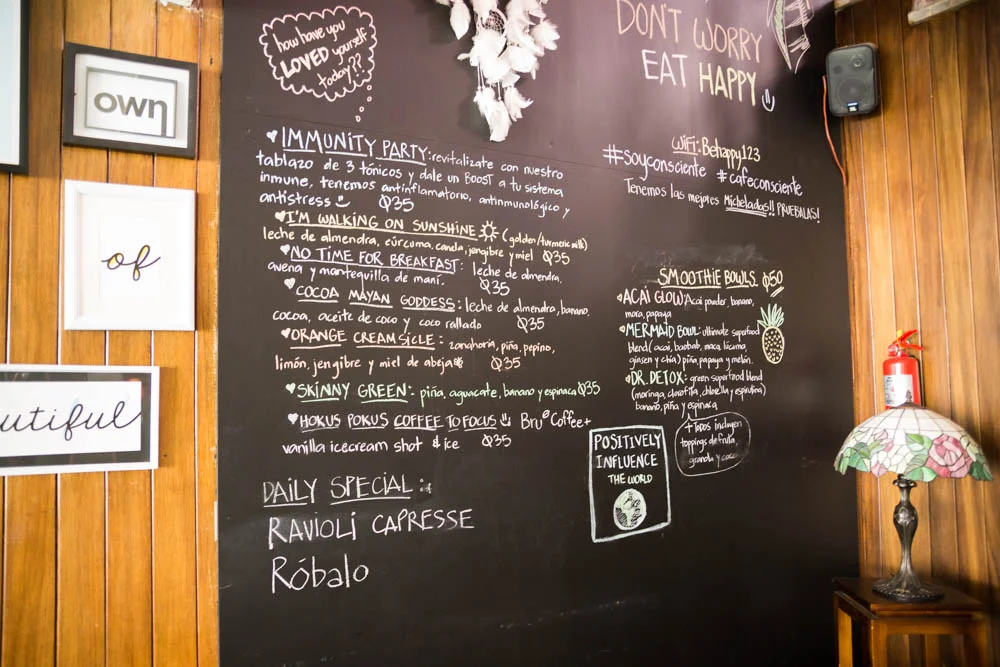 own
of
utiful
how have you
LOVED yourself
today??
DON'T WORRY
EAT HAPPY
♥ IMMUNITY PARTY: revitalizate con nuestro
tablazo de 3 tónicos y dale un BOOST a tu sistema
inmune, tenemos antinflamatorio, antinmunológico y
antistress Q35
♥ I'M WALKING ON SUNSHINE (golden/turmeric milk)
leche de almendra, cúrcuma, canela, jengibre y miel Q35
♥ NO TIME FOR BREAKFAST: leche de almendra,
avena y mantequilla de maní. Q35
♥ COCOA MAYAN GODDESS: leche de almendra, banano,
cocoa, aceite de coco y coco rallado Q35
♥ ORANGE CREAMSICLE: zanahoria, piña, pepino,
limón, jengibre y miel de abeja Q35
♥ SKINNY GREEN: piña, aguacate, banano y espinaca Q35
♥ HOKUS POKUS COFFEE TO FOCUS Bru Coffee+
vanilla icecream shot & ice Q35
DAILY SPECIAL:
RAVIOLI CAPRESSE
Róbalo
WiFi: Behappy123
#soyconsciente #cafeconsciente
Tenemos las mejores Micheladas!! PRUEBALAS!
SMOOTHIE BOWLS Q50
ACAI GLOW: Acai powder, banano,
mora, papaya
MERMAID BOWL: ultimate superfood
blend (acai, baobab, maca, lúcuma,
ginsen y chía) piña, papaya y melón.
DR. DETOX: green superfood blend
(moringa, clorofila, chlorella y espirulina)
banano, piña y espinaca
+ Todos incluyen
toppings de fruta,
granola y coco
POSITIVELY
INFLUENCE
THE WORLD